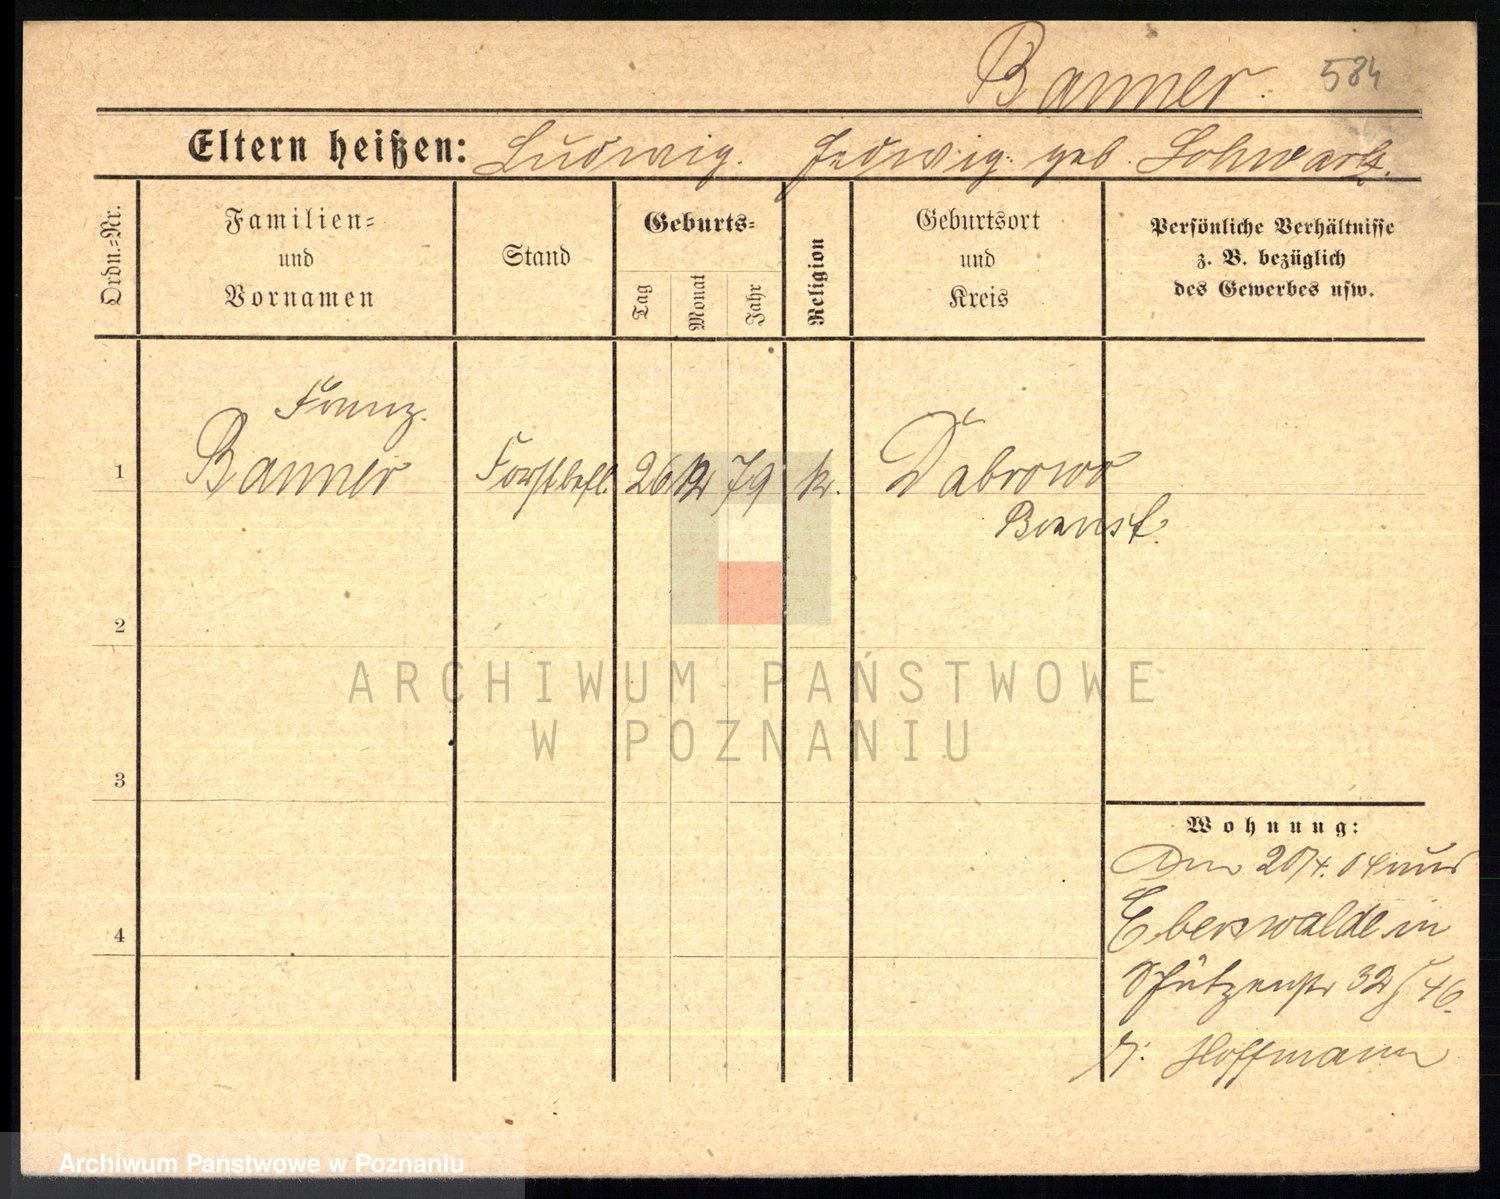 Banner. 584
Eltern heißen: Ludwig. Hedwig geb. Schwartz.
Ordn.=Nr.
Familien=
und
Vornamen
Stand
Geburts=
Tag
Monat
Jahr
Religion
Geburtsort
und
Kreis
Persönliche Verhältnisse
z. B. bezüglich
des Gewerbes usw.
Franz.
1 Banner Forstbefl. 26 12 79 k. Dabrowo
2
3
4
Wohnung:
20/4. 04 aus
Eberswalde in
Schützenstr 32 46.
b. Hoffmann
ARCHIWUM PAŃSTWOWE
W POZNANIU
Archiwum Państwowe w Poznaniu